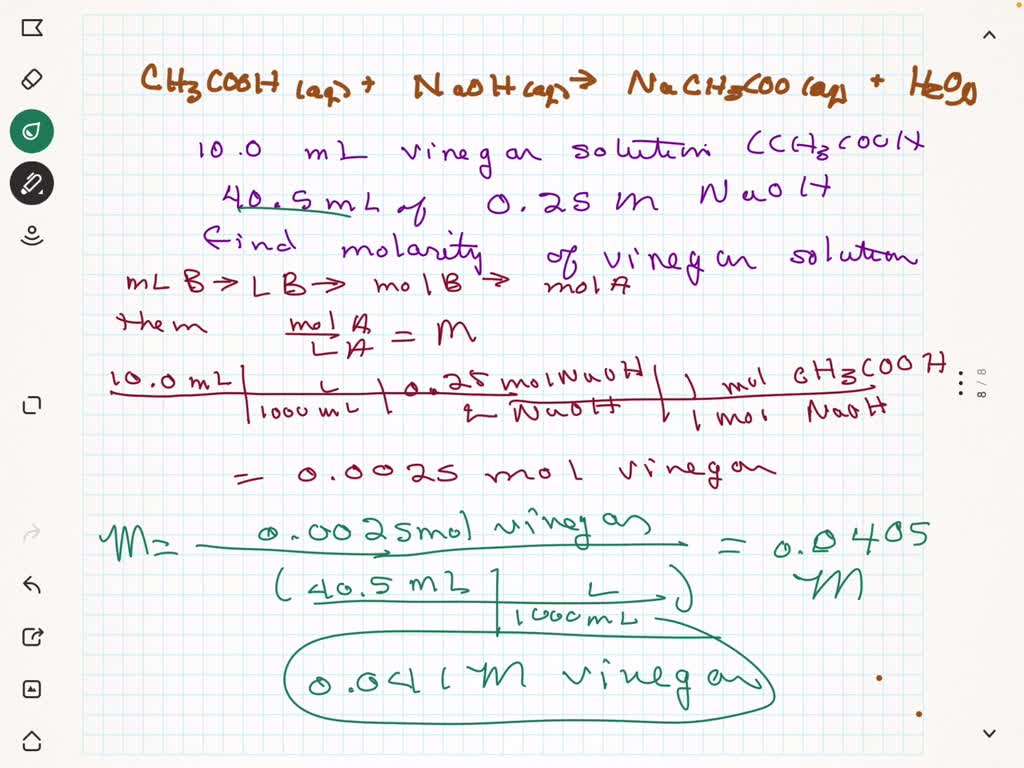 CH3COOH (aq) + NaOH (aq) → NaCH3COO (aq) + H2O
10.0 mL vinegar solution (CH3COOH
40.5 mL of 0.25 M NaOH
find molarity of vinegar solution
mL B → L B → mol B → mol A
them mol A / L A = M
10.0 mL | L | 0.25 mol NaOH | 1 mol CH3COOH
1000 mL | L NaOH | 1 mol NaOH
= 0.0025 mol vinegar
M = 0.0025 mol vinegar = 0.0405
(40.5 mL | L) M
1000 mL
0.041 M vinegar
8/8